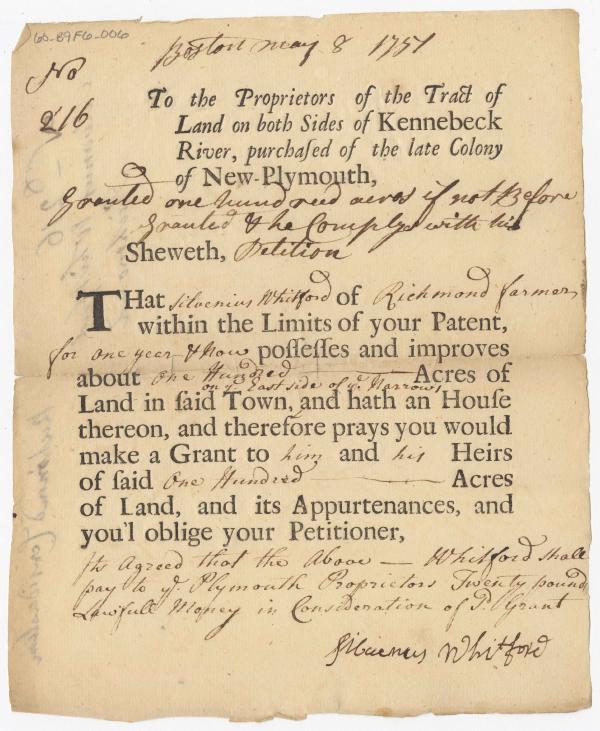 60-89F6-006
Boston may 8 1751
No
216
To the Proprietors of the Tract of
Land on both Sides of Kennebeck
River, purchaſed of the late Colony
of New-Plymouth,
Granted one hundred acres if not Before
Granted & he Comply with his
Sheweth, Petition
THat Silvenius Whitford of Richmond farmer
within the Limits of your Patent,
for one year & Now poſſeſſes and improves
about one Hundred Acres of
on ye East side of ye Narrows
Land in ſaid Town, and hath an Houſe
thereon, and therefore prays you would
make a Grant to him and his Heirs
of ſaid One Hundred Acres
of Land, and its Appurtenances, and
you'l oblige your Petitioner,
Its Agreed that the Above — Whitford shall
pay to ye Plymouth Proprietors Twenty pound
Lawfull Money in Consideration of Grant
Silvenus Whitford